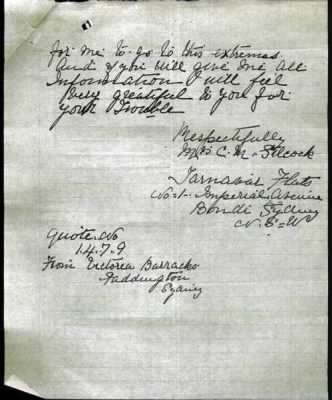 for me to go to this extremes
And if you will give me all
Information I will feel
Very greatful to you for
your Trouble
Respectfully
Mrs C. M. Silcock
Tarnavar Flats
No 1 Imperial Avenue
Bondi Sydney
N. S. W
Quote No
1.4.7.9
From Victoria Barracks
Paddington
Sydney